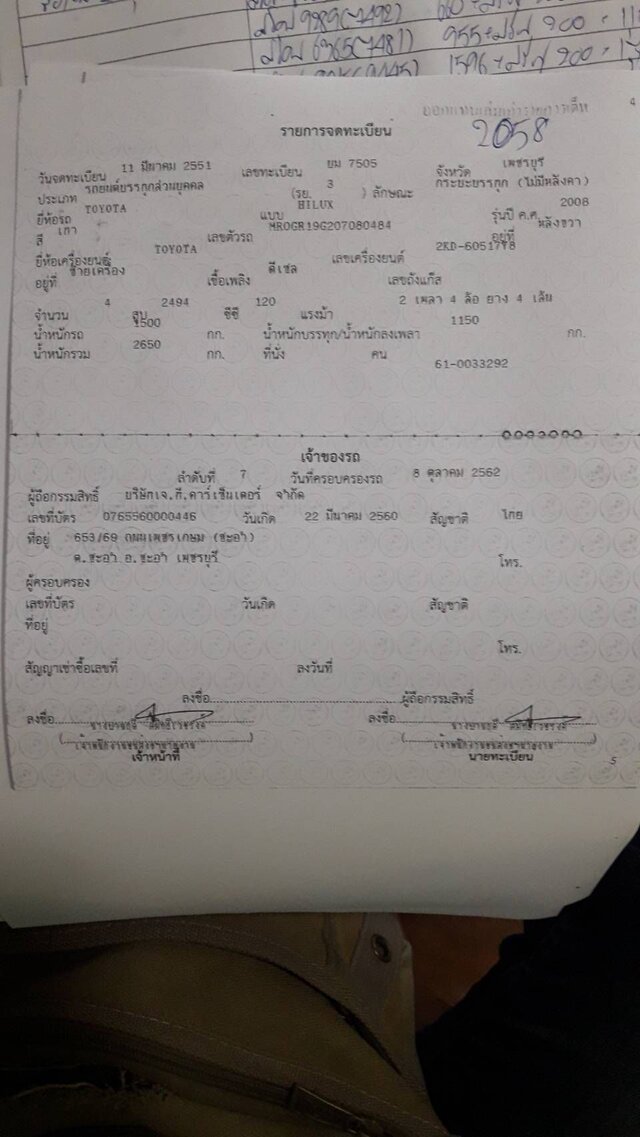 รายการจดทะเบียน
2058
วันจดทะเบียน 11 มีนาคม 2551 เลขทะเบียน ยม 7505 จังหวัด เพชรบุรี
ประเภท รถยนต์บรรทุกส่วนบุคคล (รย. 3 ) ลักษณะ กระบะบรรทุก (ไม่มีหลังคา)
ยี่ห้อรถ TOYOTA แบบ HILUX รุ่นปี ค.ศ. 2008
สี เทา เลขตัวรถ MR0GR19G207080484 อยู่ที่ หลังขวา
ยี่ห้อเครื่องยนต์ TOYOTA เลขเครื่องยนต์ 2KD-6051778
อยู่ที่ ซ้ายเครื่อง เชื้อเพลิง ดีเซล เลขถังแก๊ส
จำนวน 4 สูบ 2494 ซีซี 120 แรงม้า 2 เพลา 4 ล้อ ยาง 4 เส้น
น้ำหนักรถ 1500 กก. น้ำหนักบรรทุก/น้ำหนักลงเพลา 1150 กก.
น้ำหนักรวม 2650 กก. ที่นั่ง คน
61-0033292
เจ้าของรถ
ลำดับที่ 7 วันที่ครอบครองรถ 8 ตุลาคม 2562
ผู้ถือกรรมสิทธิ์ บริษัทเจ.ที.คาร์เซ็นเตอร์ จำกัด
เลขที่บัตร 0765560000446 วันเกิด 22 มีนาคม 2560 สัญชาติ ไทย
ที่อยู่ 653/69 ถนนเพชรเกษม (ชะอำ)
ต.ชะอำ อ.ชะอำ เพชรบุรี
โทร.
ผู้ครอบครอง
เลขที่บัตร วันเกิด สัญชาติ
ที่อยู่
โทร.
สัญญาเช่าซื้อเลขที่ ลงวันที่
ลงชื่อ ผู้ถือกรรมสิทธิ์
ลงชื่อ ลงชื่อ
เจ้าหน้าที่ นายทะเบียน
5